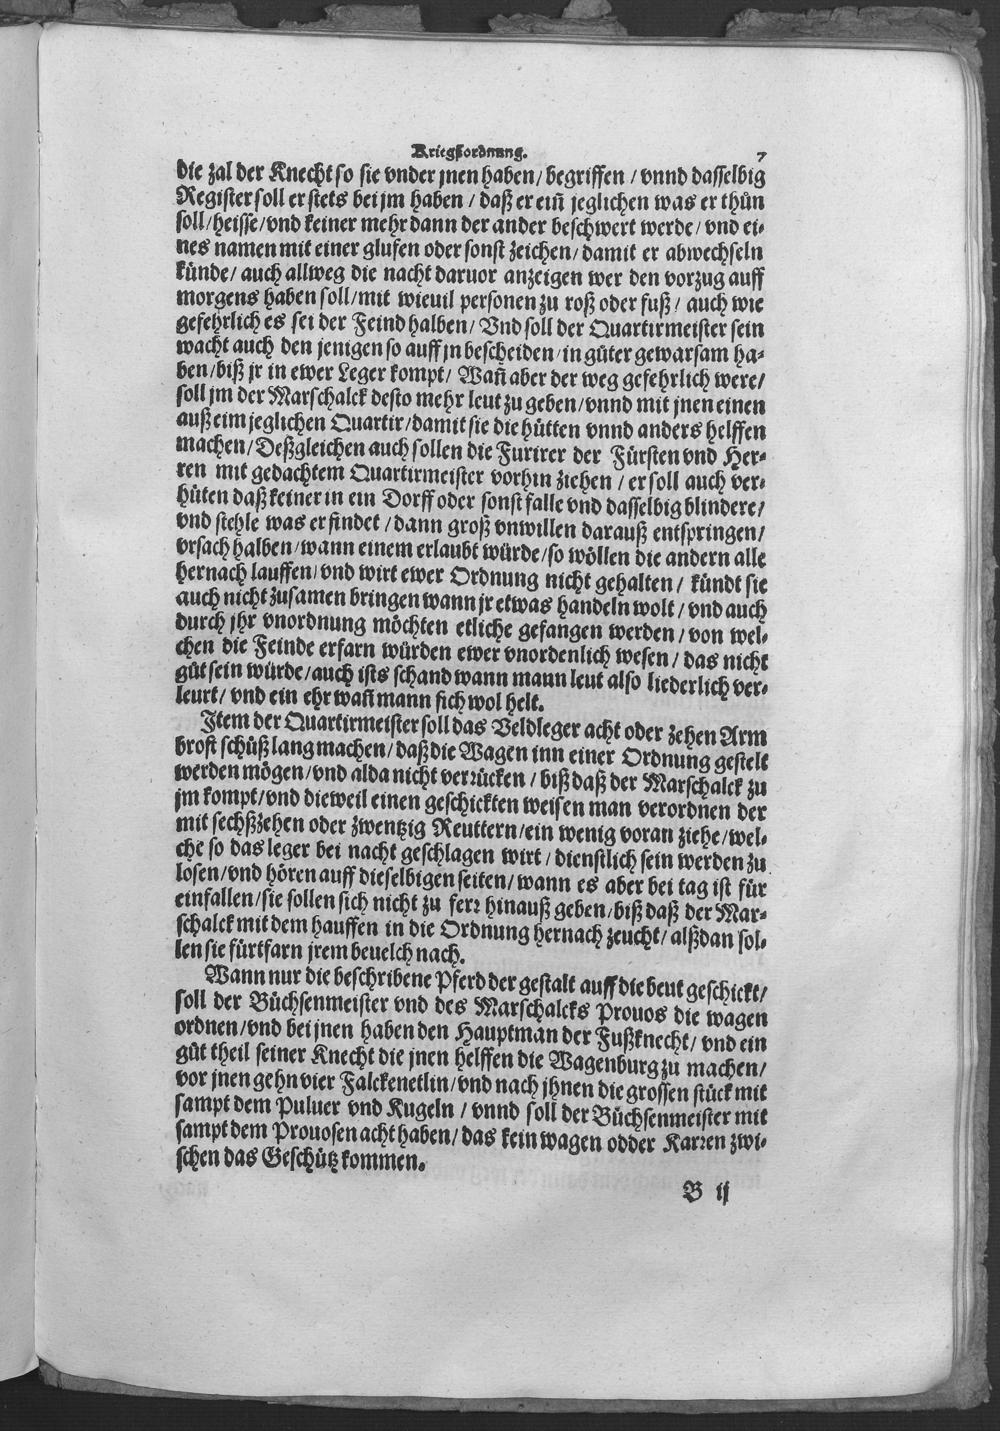 Kriegßordnung. 7
die zal der Knecht so sie vnder jnen haben / begriffen / vnnd dasselbig
Register soll er stets bei jm haben / daß er eiñ jeglichen was er thůn
soll / heisse / vnd keiner mehr dann der ander beschwert werde / vnd ei-
nes namen mit einer glufen oder sonst zeichen / damit er abwechseln
künde / auch allweg die nacht daruor anzeigen wer den vorzug auff
morgens haben soll / mit wieuil personen zu roß oder fuß / auch wie
gefehrlich es sei der Feind halben / Vnd soll der Quartirmeister sein
wacht auch den jenigen so auff jn bescheiden / in gůter gewarsam ha-
ben / biß jr in ewer Leger kompt / Wañ aber der weg gefehrlich were /
soll jm der Marschalck desto mehr leut zu geben / vnnd mit jnen einen
auß eim jeglichen Quartir / damit sie die hütten vnnd anders helffen
machen / Deßgleichen auch sollen die Furirer der Fürsten vnd Her-
ren mit gedachtem Quartirmeister vorhin ziehen / er soll auch ver-
hüten daß keiner in ein Dorff oder sonst falle vnd dasselbig blindere /
vnd stehle was er findet / dann groß vnwillen darauß entspringen /
vrsach halben / wann einem erlaubt würde / so wöllen die andern alle
hernach lauffen / vnd wirt ewer Ordnung nicht gehalten / kündt sie
auch nicht zusamen bringen wann jr etwas handeln wolt / vnd auch
durch jhr vnordnung möchten etliche gefangen werden / von wel-
chen die Feinde erfarn würden ewer vnordenlich wesen / das nicht
gůt sein würde / auch ists schand wann mann leut also liederlich ver-
leurt / vnd ein ehr wañ mann sich wol helt.
Item der Quartirmeister soll das Veldleger acht oder zehen Arm
brost schüß lang machen / daß die Wagen inn einer Ordnung gestelt
werden mögen / vnd alda nicht verrücken / biß daß der Marschalck zu
jm kompt / vnd dieweil einen geschickten weisen man verordnen der
mit sechßzehen oder zwentzig Reuttern / ein wenig voran ziehe / wel-
che so das leger bei nacht geschlagen wirt / dienstlich sein werden zu
losen / vnd hören auff dieselbigen seiten / wann es aber bei tag ist für
einfallen / sie sollen sich nicht zu ferr hinauß geben / biß daß der Mar-
schalck mit dem hauffen in die Ordnung hernach zeucht / alßdan sol-
len sie fürtfarn jrem beuelch nach.
Wann nur die beschribene Pferd der gestalt auff die beut geschickt /
soll der Büchsenmeister vnd des Marschalcks Prouos die wagen
ordnen / vnd bei jnen haben den Hauptman der Fußknecht / vnd ein
gůt theil seiner Knecht die jnen helffen die Wagenburg zu machen /
vor jnen gehn vier Falckenetlin / vnd nach jhnen die grossen stück mit
sampt dem Puluer vnd Kugeln / vnnd soll der Büchsenmeister mit
sampt dem Prouosen acht haben / das kein wagen odder Karren zwi-
schen das Geschütz kommen.
B ij